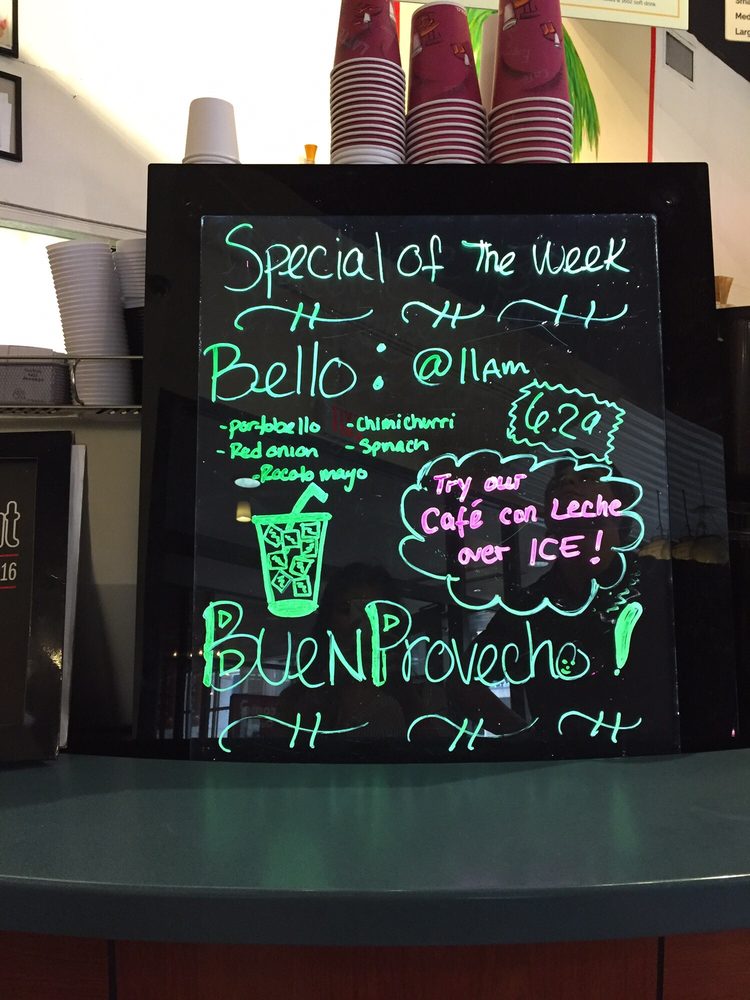 & 16oz soft drink
Sma
Med
Larg
Special of The Week
Bello: @11Am
6.29
-portobello -Chimichurri
-Red onion -Spinach
-Rocoto mayo
Try our
Café con Leche
over ICE!
16
BUEN Provecho!